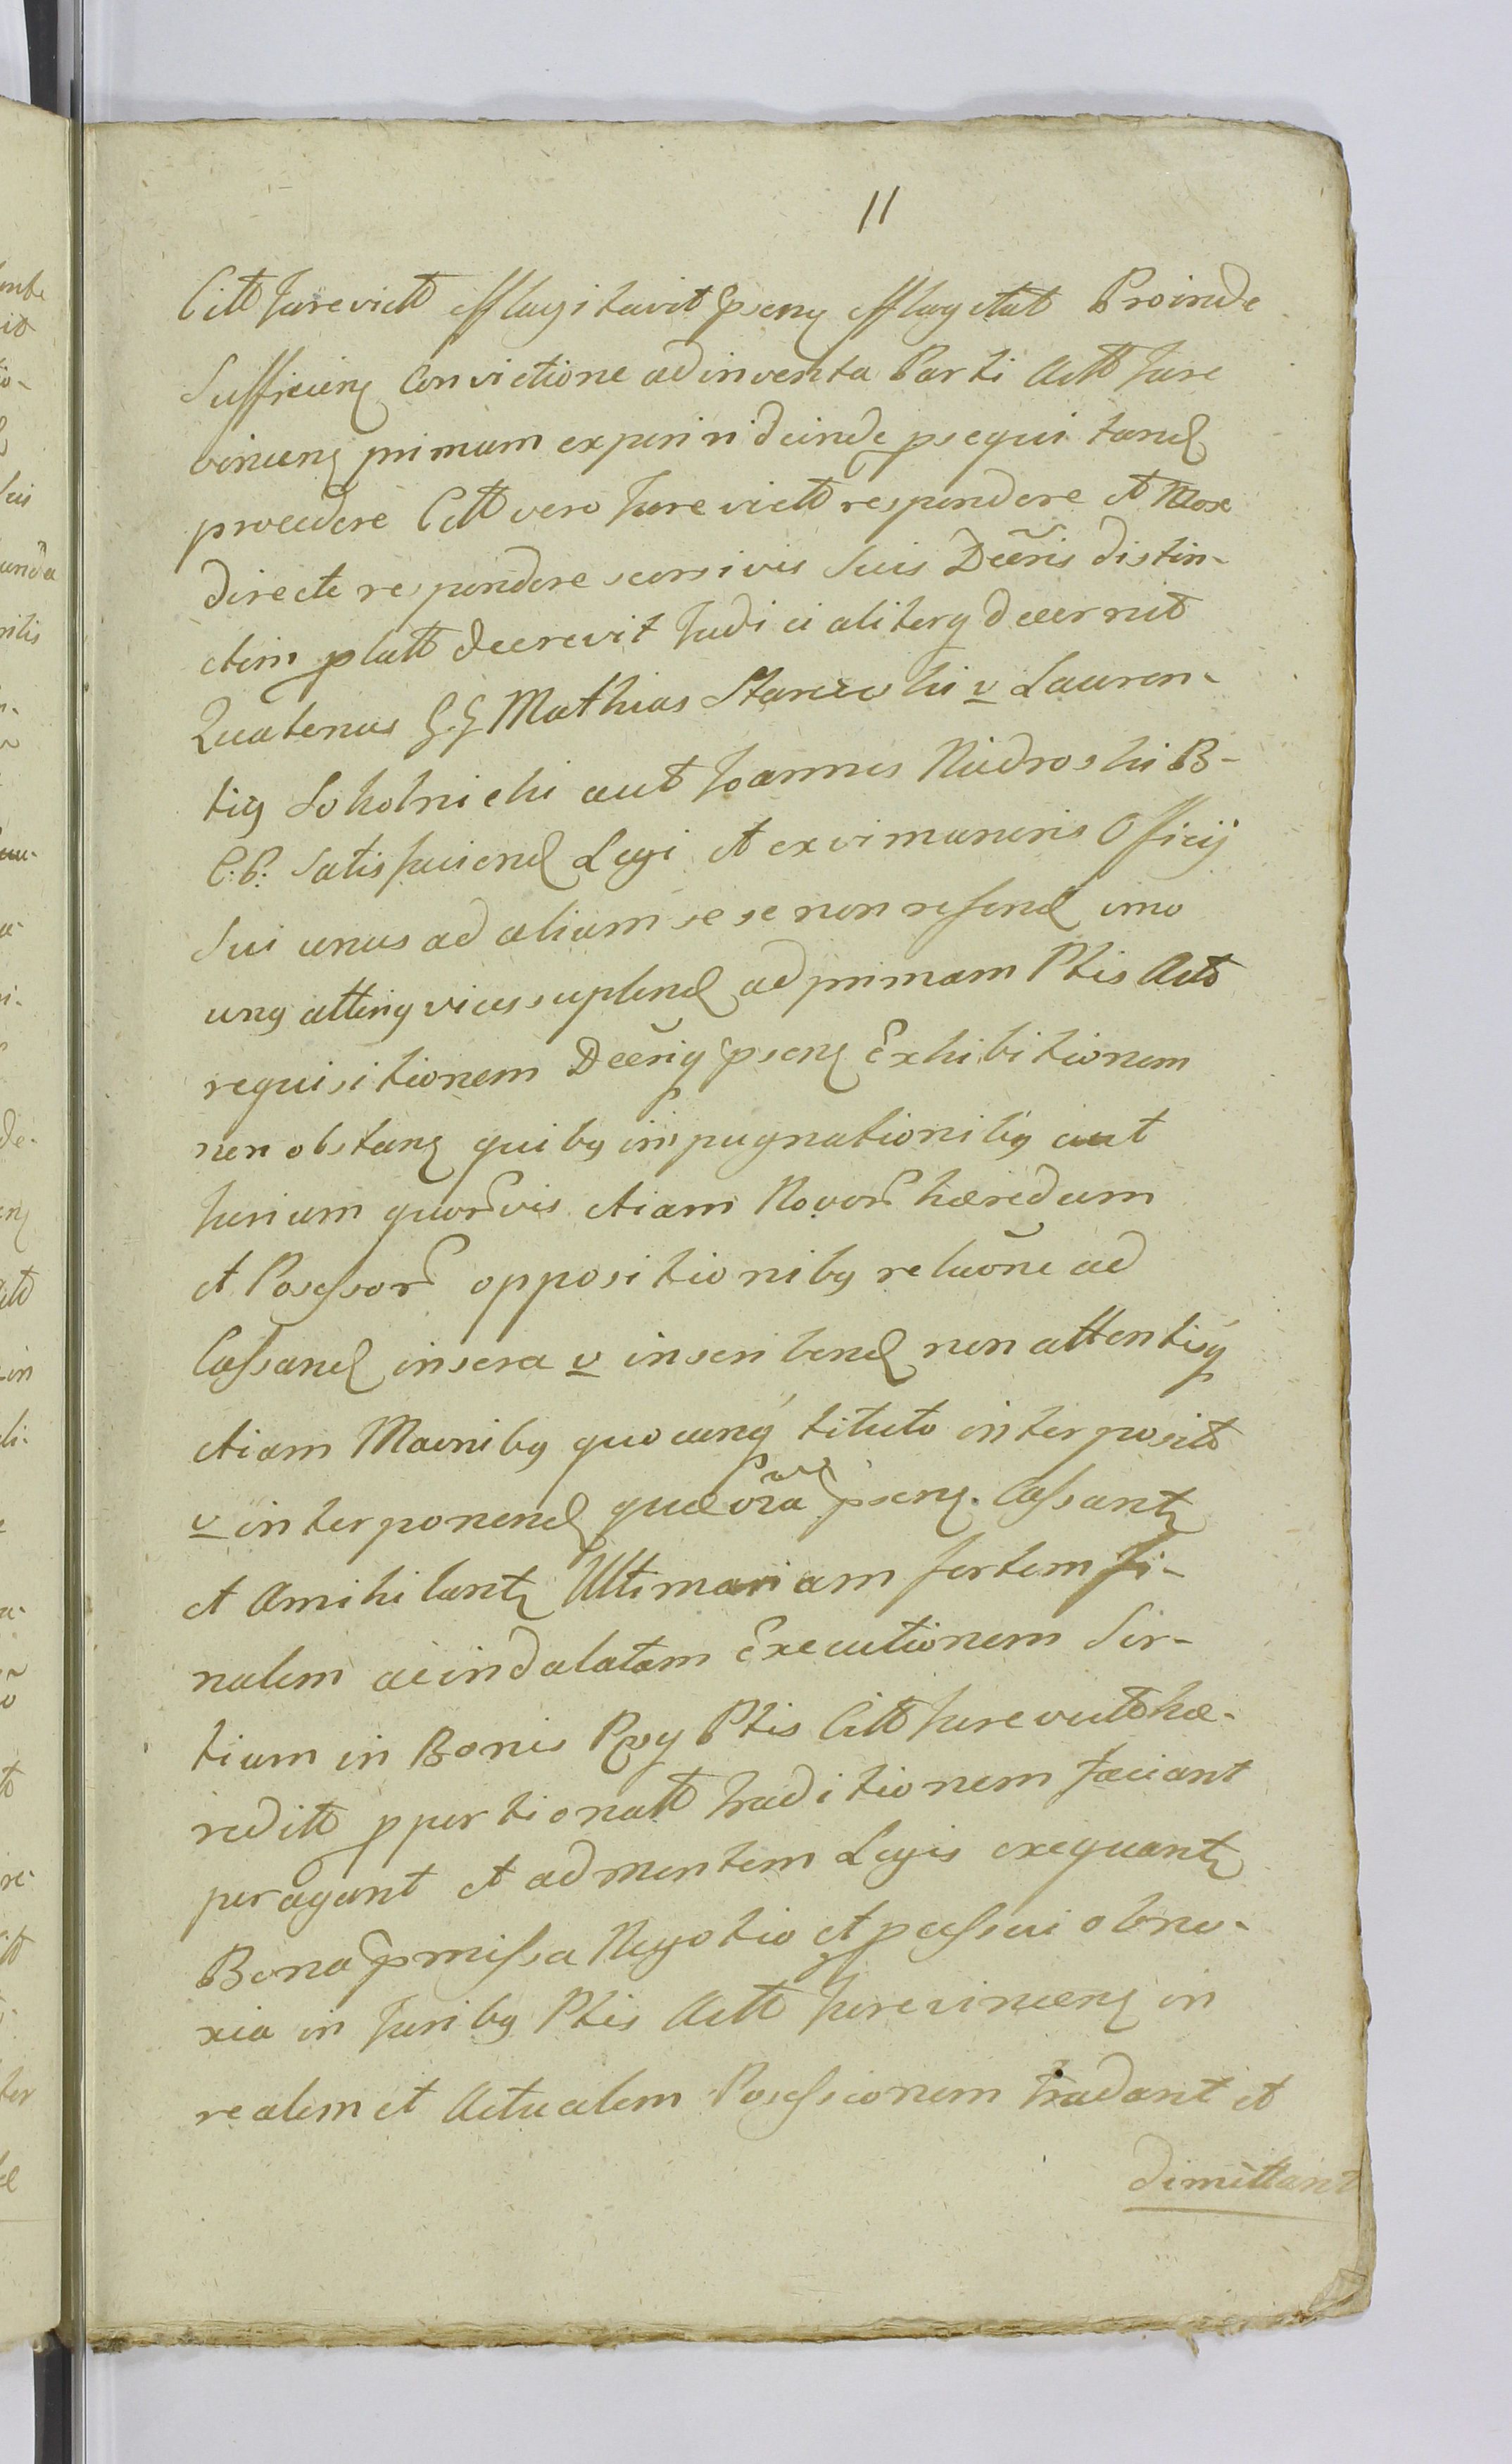 11
Citt Jurevictt efflagitavit psenq efflagitat Proinde
Sufficienq Convictione adinventa Parti Actt Jure
vincenq primum experiri deinde psequi tand
procedere Citt vero Jure victt respondere et Mox
directe respondere seorsivis suis Decris distin-
ctim platt decrevit Judicialiterq decernit
Quatenus G.G Mathias Starzewski v Lauren-
tiq Sokolnicki aut Joannes Niedroski B-
C.P. satisfaciend Legi et ex vi muneris Officij
Sui unus ad alium sese non referend imo
unq alteriq vices suplend ad primam Ptis Actt
requisitionem Decriq psenq Exhibitionem
non obstanq quibq impugnationibq aut
Jurium quorvis etiam Novor hæredum
et Possessor oppositionibq relaõne ad
Cassand insera v inseribend non attentisq
etiam Maonibq quocunq titulo interposit
v interponend quæ oĩa psenq. Cassantr
et Annihilantr Ultimariam fortem fi-
nalem ac indalatam Executionem Sor-
tium in Bonis Rsq Ptis Citt Jure victt hæ-
reditt pportionatt traditionem faciant
peragant et ad mentem Legis exequantr
Bona pmissa Negotio et passui obno-
xia in Juribq Ptis Actt Jurevincenq in
realem et Actualem Possessionem tradant et
dimittant